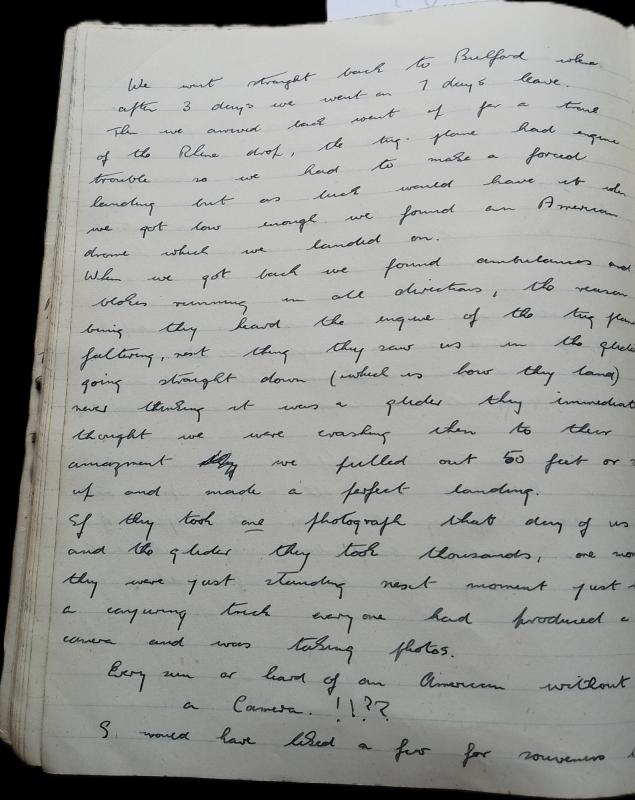 We went straight back to Bulford when
after 3 days we went on 7 days leave.
Then we arrived back went up for a trial
of the Rhine drop, the tug-plane had engine
trouble so we had to make a forced
landing but as luck would have it when
we got low enough we found an American
drome which we landed on.
When we got back we found ambulances and
blokes running in all directions, the reason
being they heard the engine of the tug plane
faltering, next thing they saw us in the glider
going straight down (which is how they land)
never thinking it was a glider they immediat
thought we were crashing then to their
amazment we pulled out 50 feet or
up and made a perfect landing.
If they took one photograph that day of us
and the glider they took thousands, one mo
they were just standing next moment just
a conjuring trick everyone had produced a
camera and was taking photos.
Ever seen or heard of an American without
a Camera. !!??
I would have liked a few for souvenirs